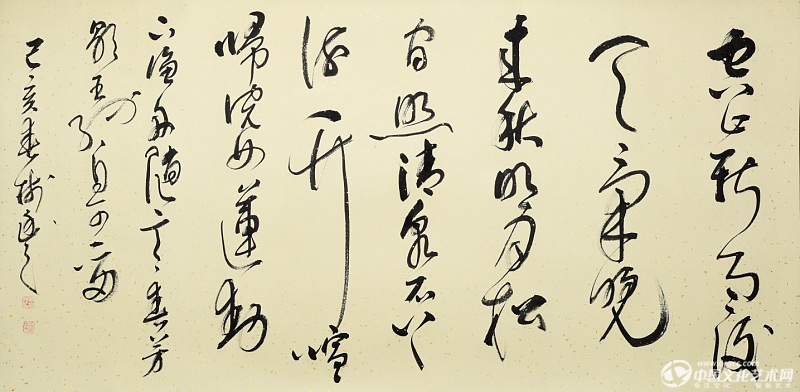 空山新雨後
天氣晚
来秋明月松
間照清泉石上
流竹喧
歸浣女蓮動
下漁舟隨意春芳
歇王孫自可留
己亥春樹
中国文化艺术网